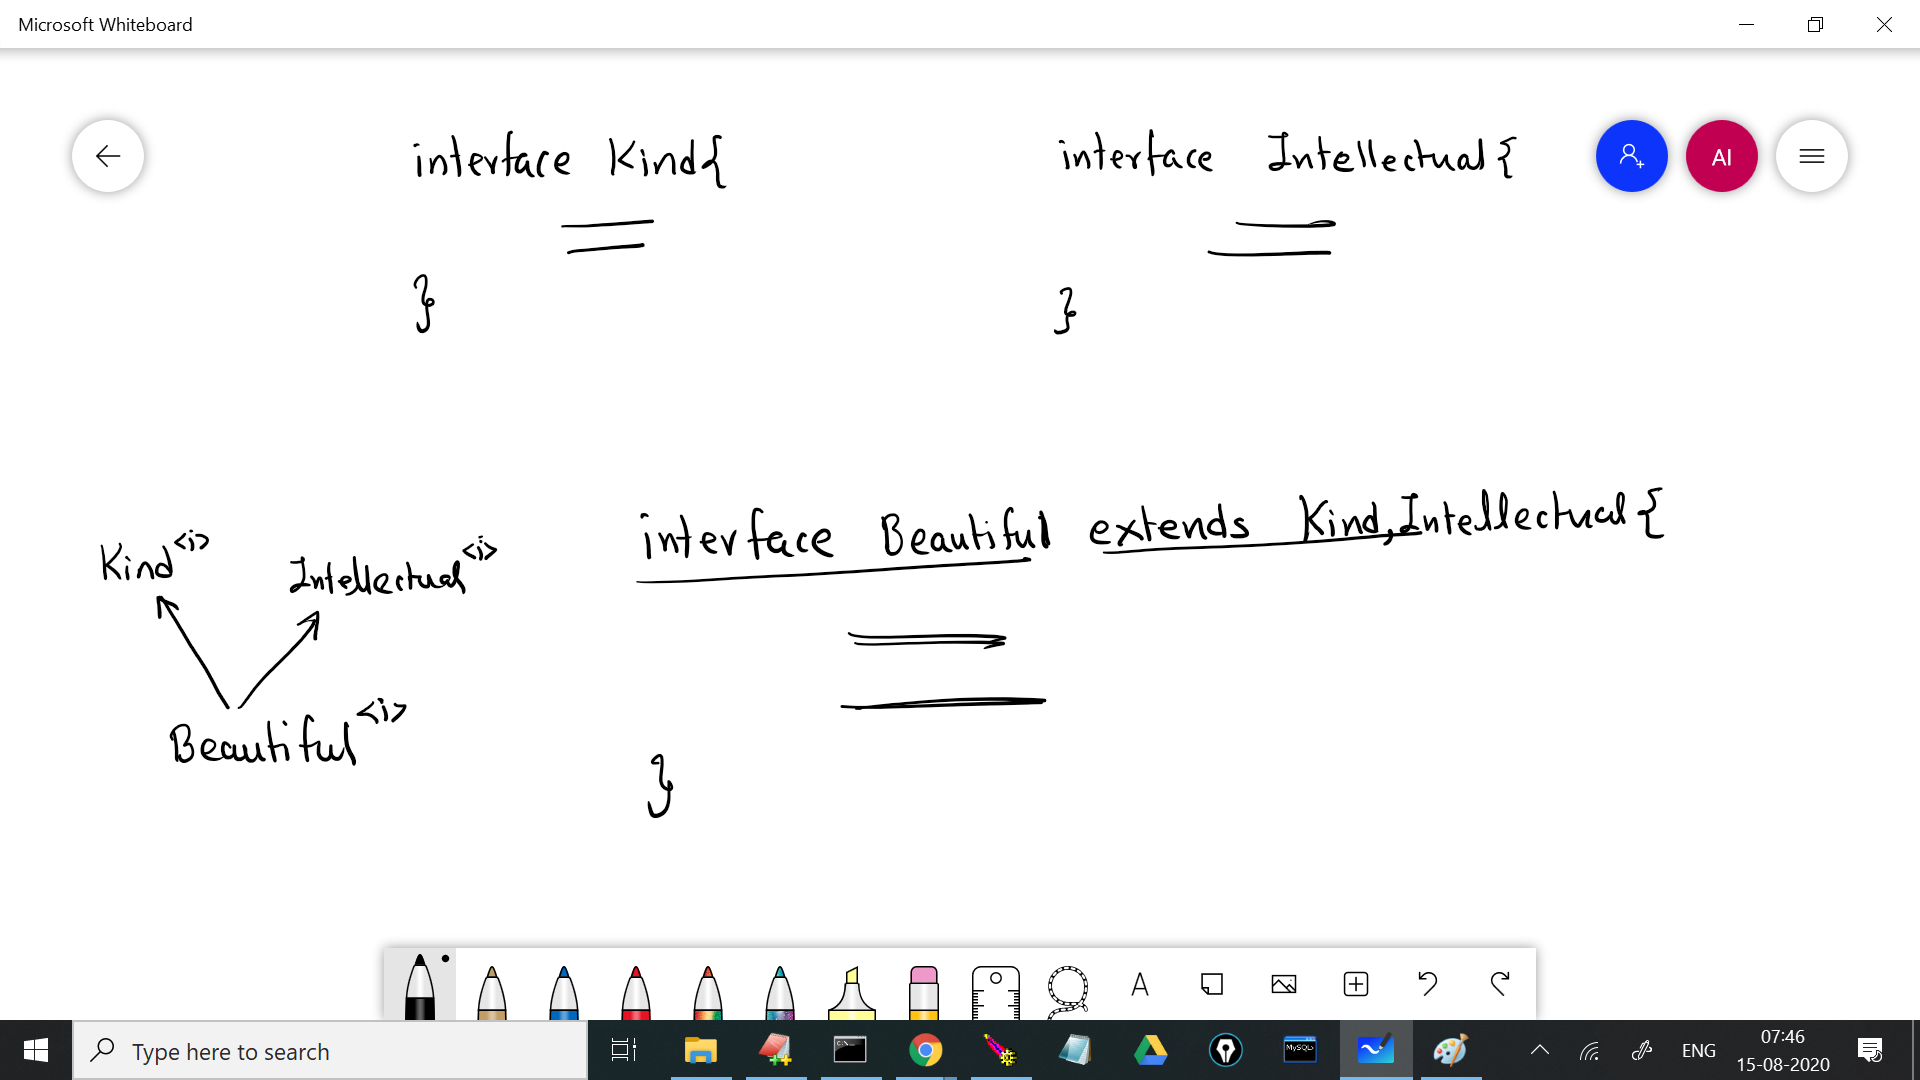 Microsoft Whiteboard
interface Kind{
}
interface Intellectual{
}
AI
Kind<i>
Intellectual<i>
Beautiful<i>
interface Beautiful extends Kind,Intellectual{
}
A
Type here to search
C:\
MySQL
ENG
07:46
15-08-2020